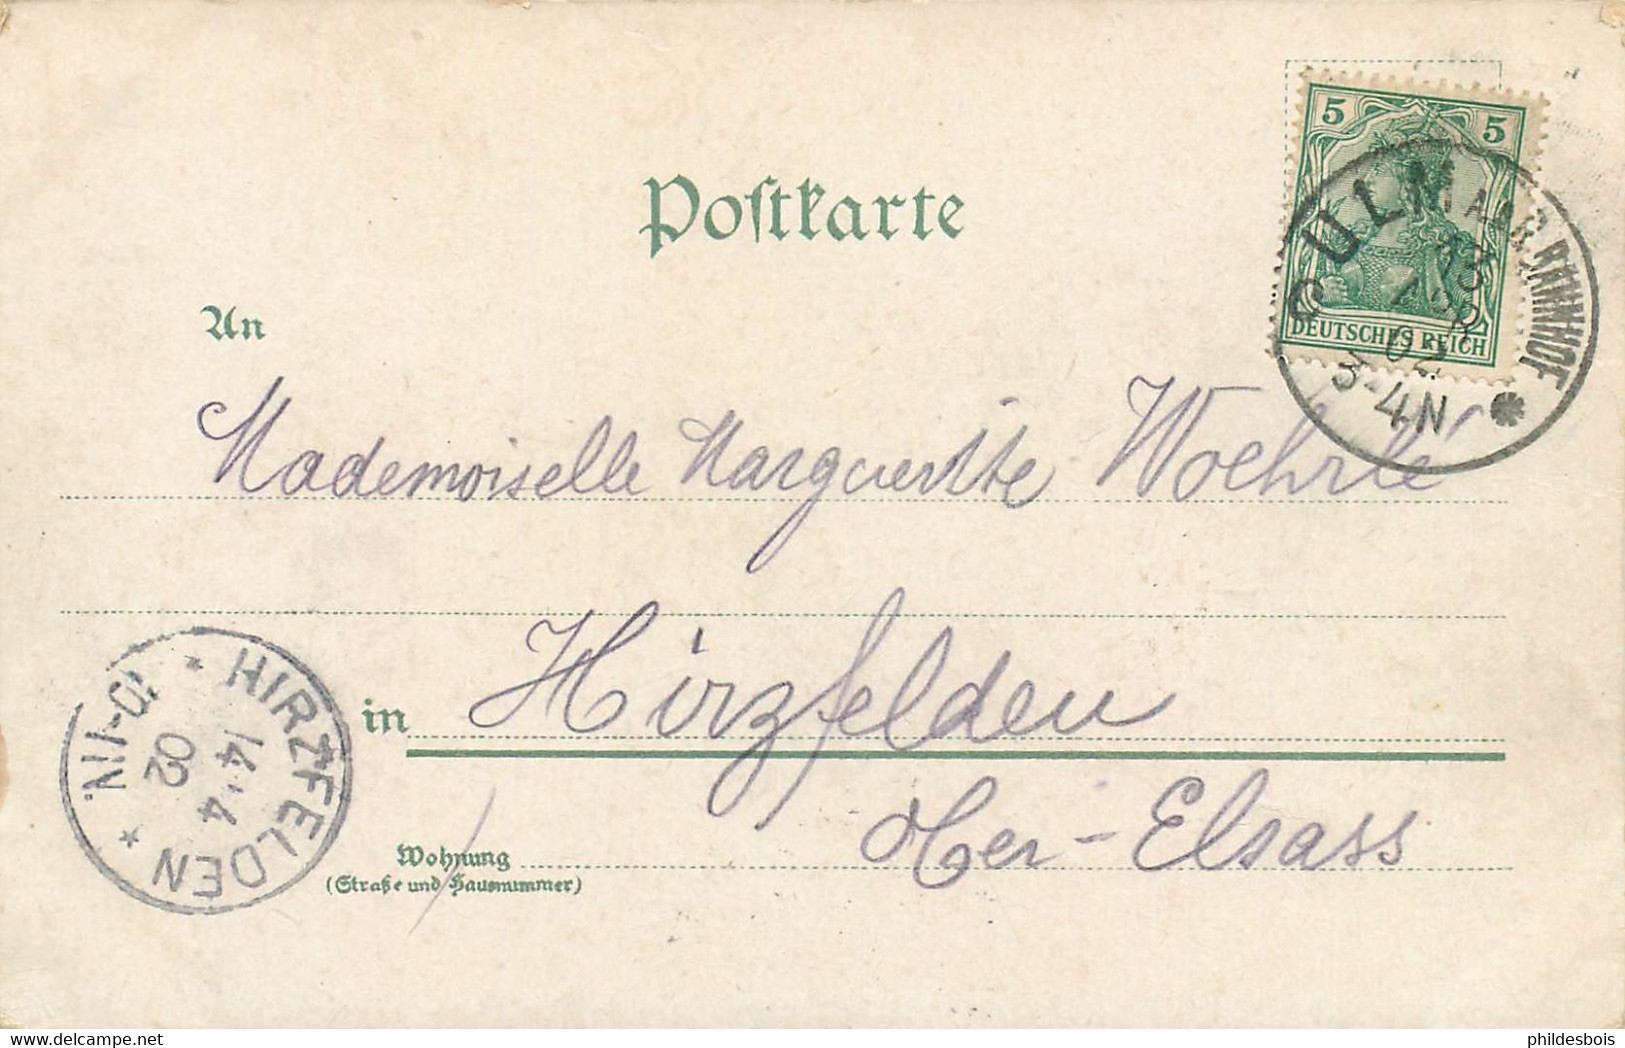 Postkarte
5 5
DEUTSCHES REICH
CULM BAHNHOF
13
APR
02
3-4N
An
Mademoiselle Marguerite Woehrlé
in Hirzfelden
Ober-Elsass
Wohnung
(Straße und Hausnummer)
HIRZFELDEN
14.4
02
10-11V.
delcampe.net
phildesbois